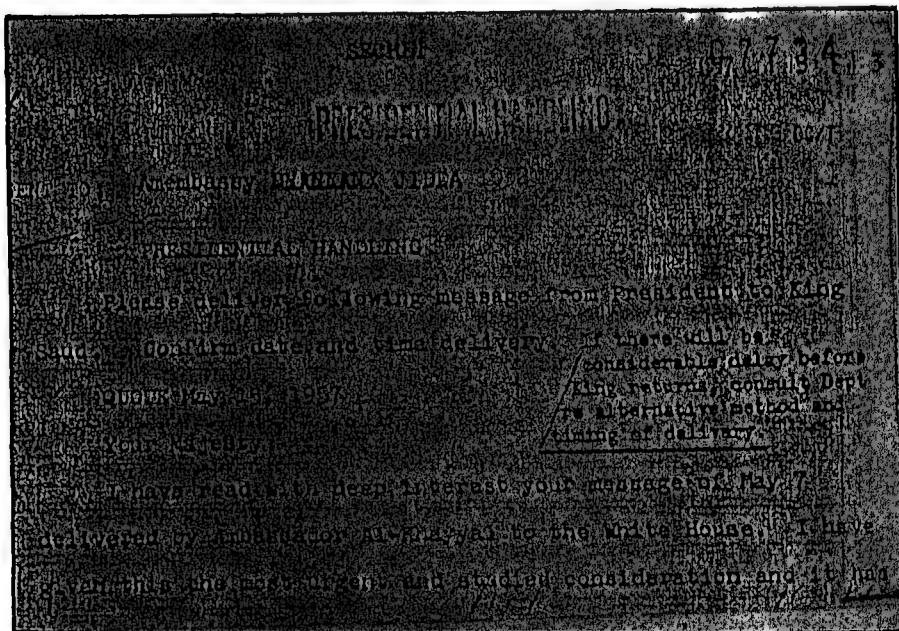 SECRET
07734
PRESIDENTIAL HANDLING
Amembassy JIDDA
PRESIDENTIAL HANDLING
Please deliver following message from President to King
Saud. Confirm date and time delivery. If there will be
considerable delay before
King returns, consult Dept
re alternative method and
timing of delivery.
QUOTE May 1957
Your Majesty:
I have read with deep interest your message of May 7
delivered by Ambassador to the White House. I have
given this the most urgent and studied consideration and it has